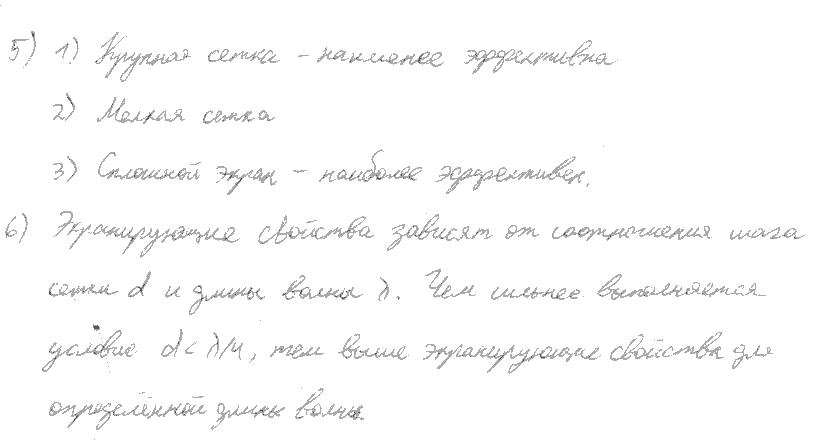 5) 1) Крупная сетка – наименее эффективна
2) Мелкая сетка
3) Сплошной экран – наиболее эффективен.
6) Экранирующие свойства зависят от соотношения шага
сетки d и длины волны λ. Чем сильнее выполняется
условие d < λ/4, тем выше экранирующие свойства для
определённой длины волны.